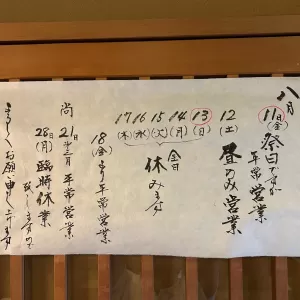 八月
11(金) 祭日ですが
平常営業
12(土) 昼のみ営業
13(日)
14(月)
15(火)
16(水)
17(木)
全日
休みます
18(金) より平常営業
尚
21日 平常営業
28日(月) 臨時休業
致しますので
よろしくお願い申し上げます